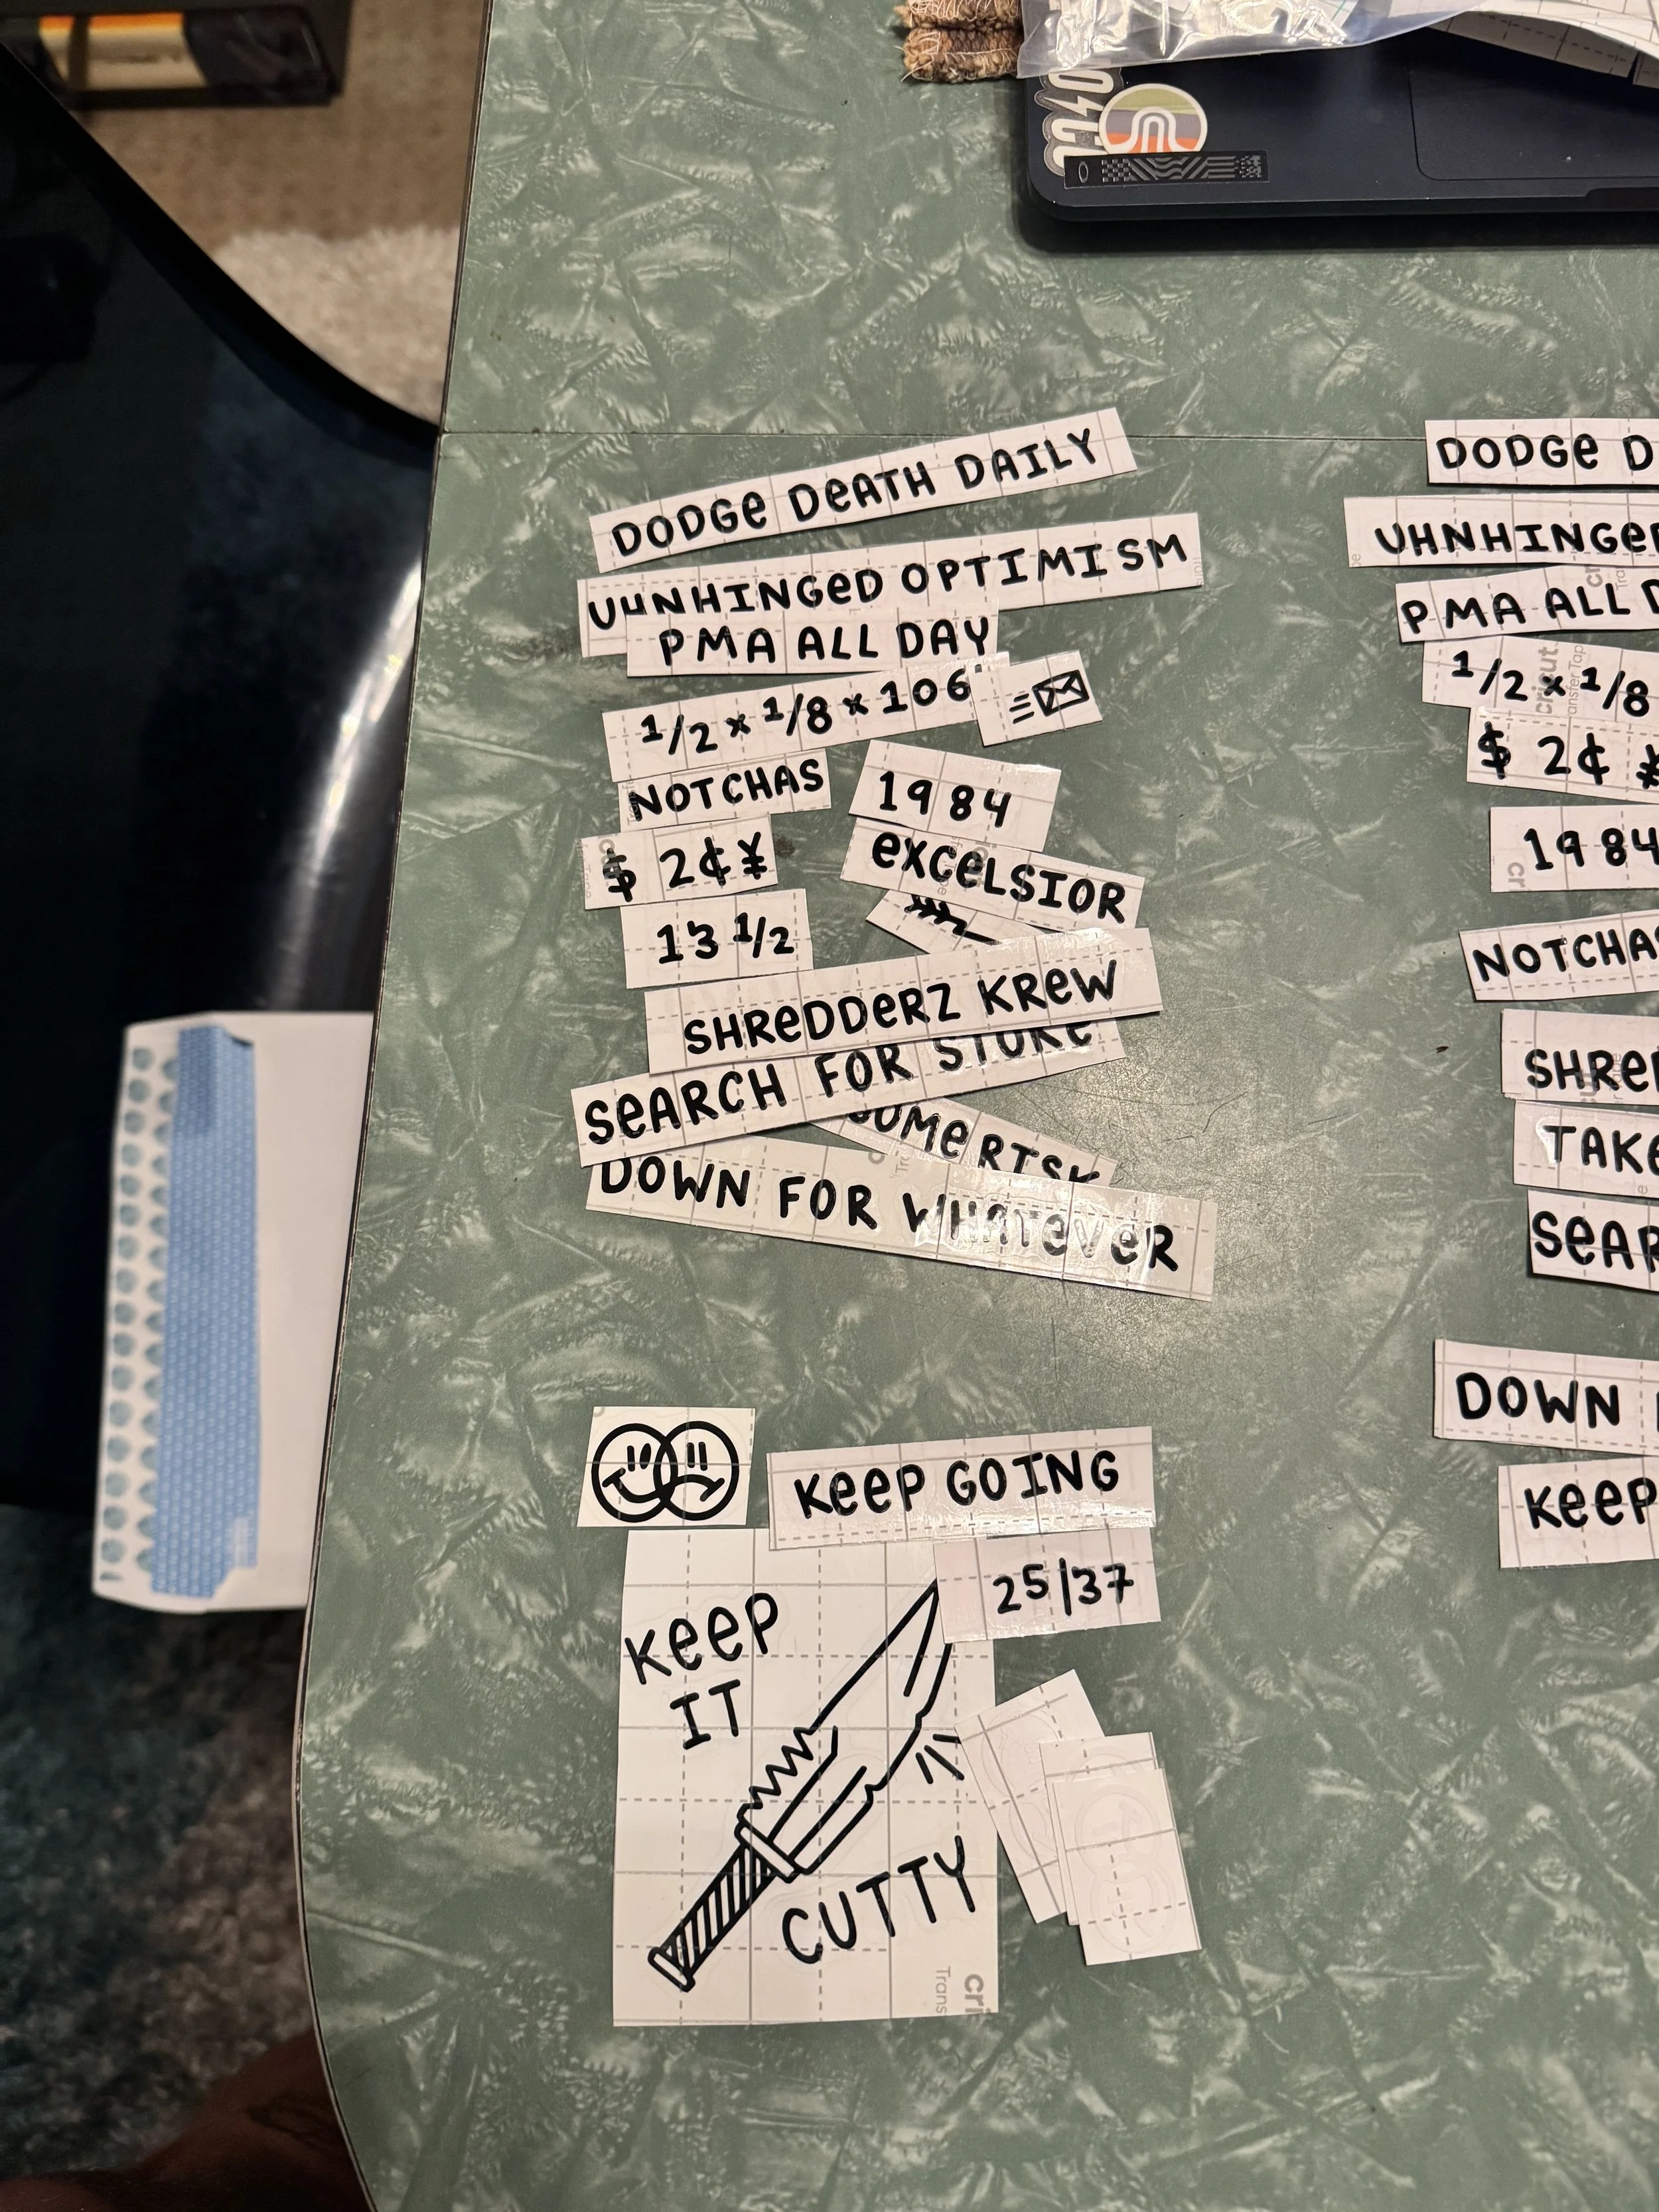 DODGe DeATH DAILY
UHNHINGeD OPTIMISM
PMA ALL DAY
1/2 x 1/8 x 106"
NOTCHAS
1984
$ 2¢ ¥
eXCeLSIOR
13 1/2
SHReDDeRZ KReW
SeARCH FOR STOKe
SOMe RISK
DOWN FOR WHATeVeR
KeeP GOING
25/37
KeeP
IT
CUTTY
cri
Trans
DODGe D
UHNHINGeD
PMA ALL D
1/2 x 1/8
cricut.
$ 2¢ ¥
1984
NOTCHAS
SHReD
TAKe
SeAR
DOWN
KeeP